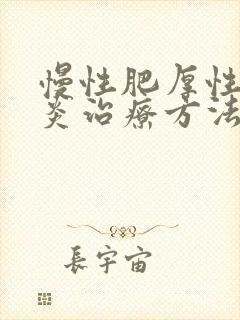 慢性肥厚性
炎治療方法
長宇宙